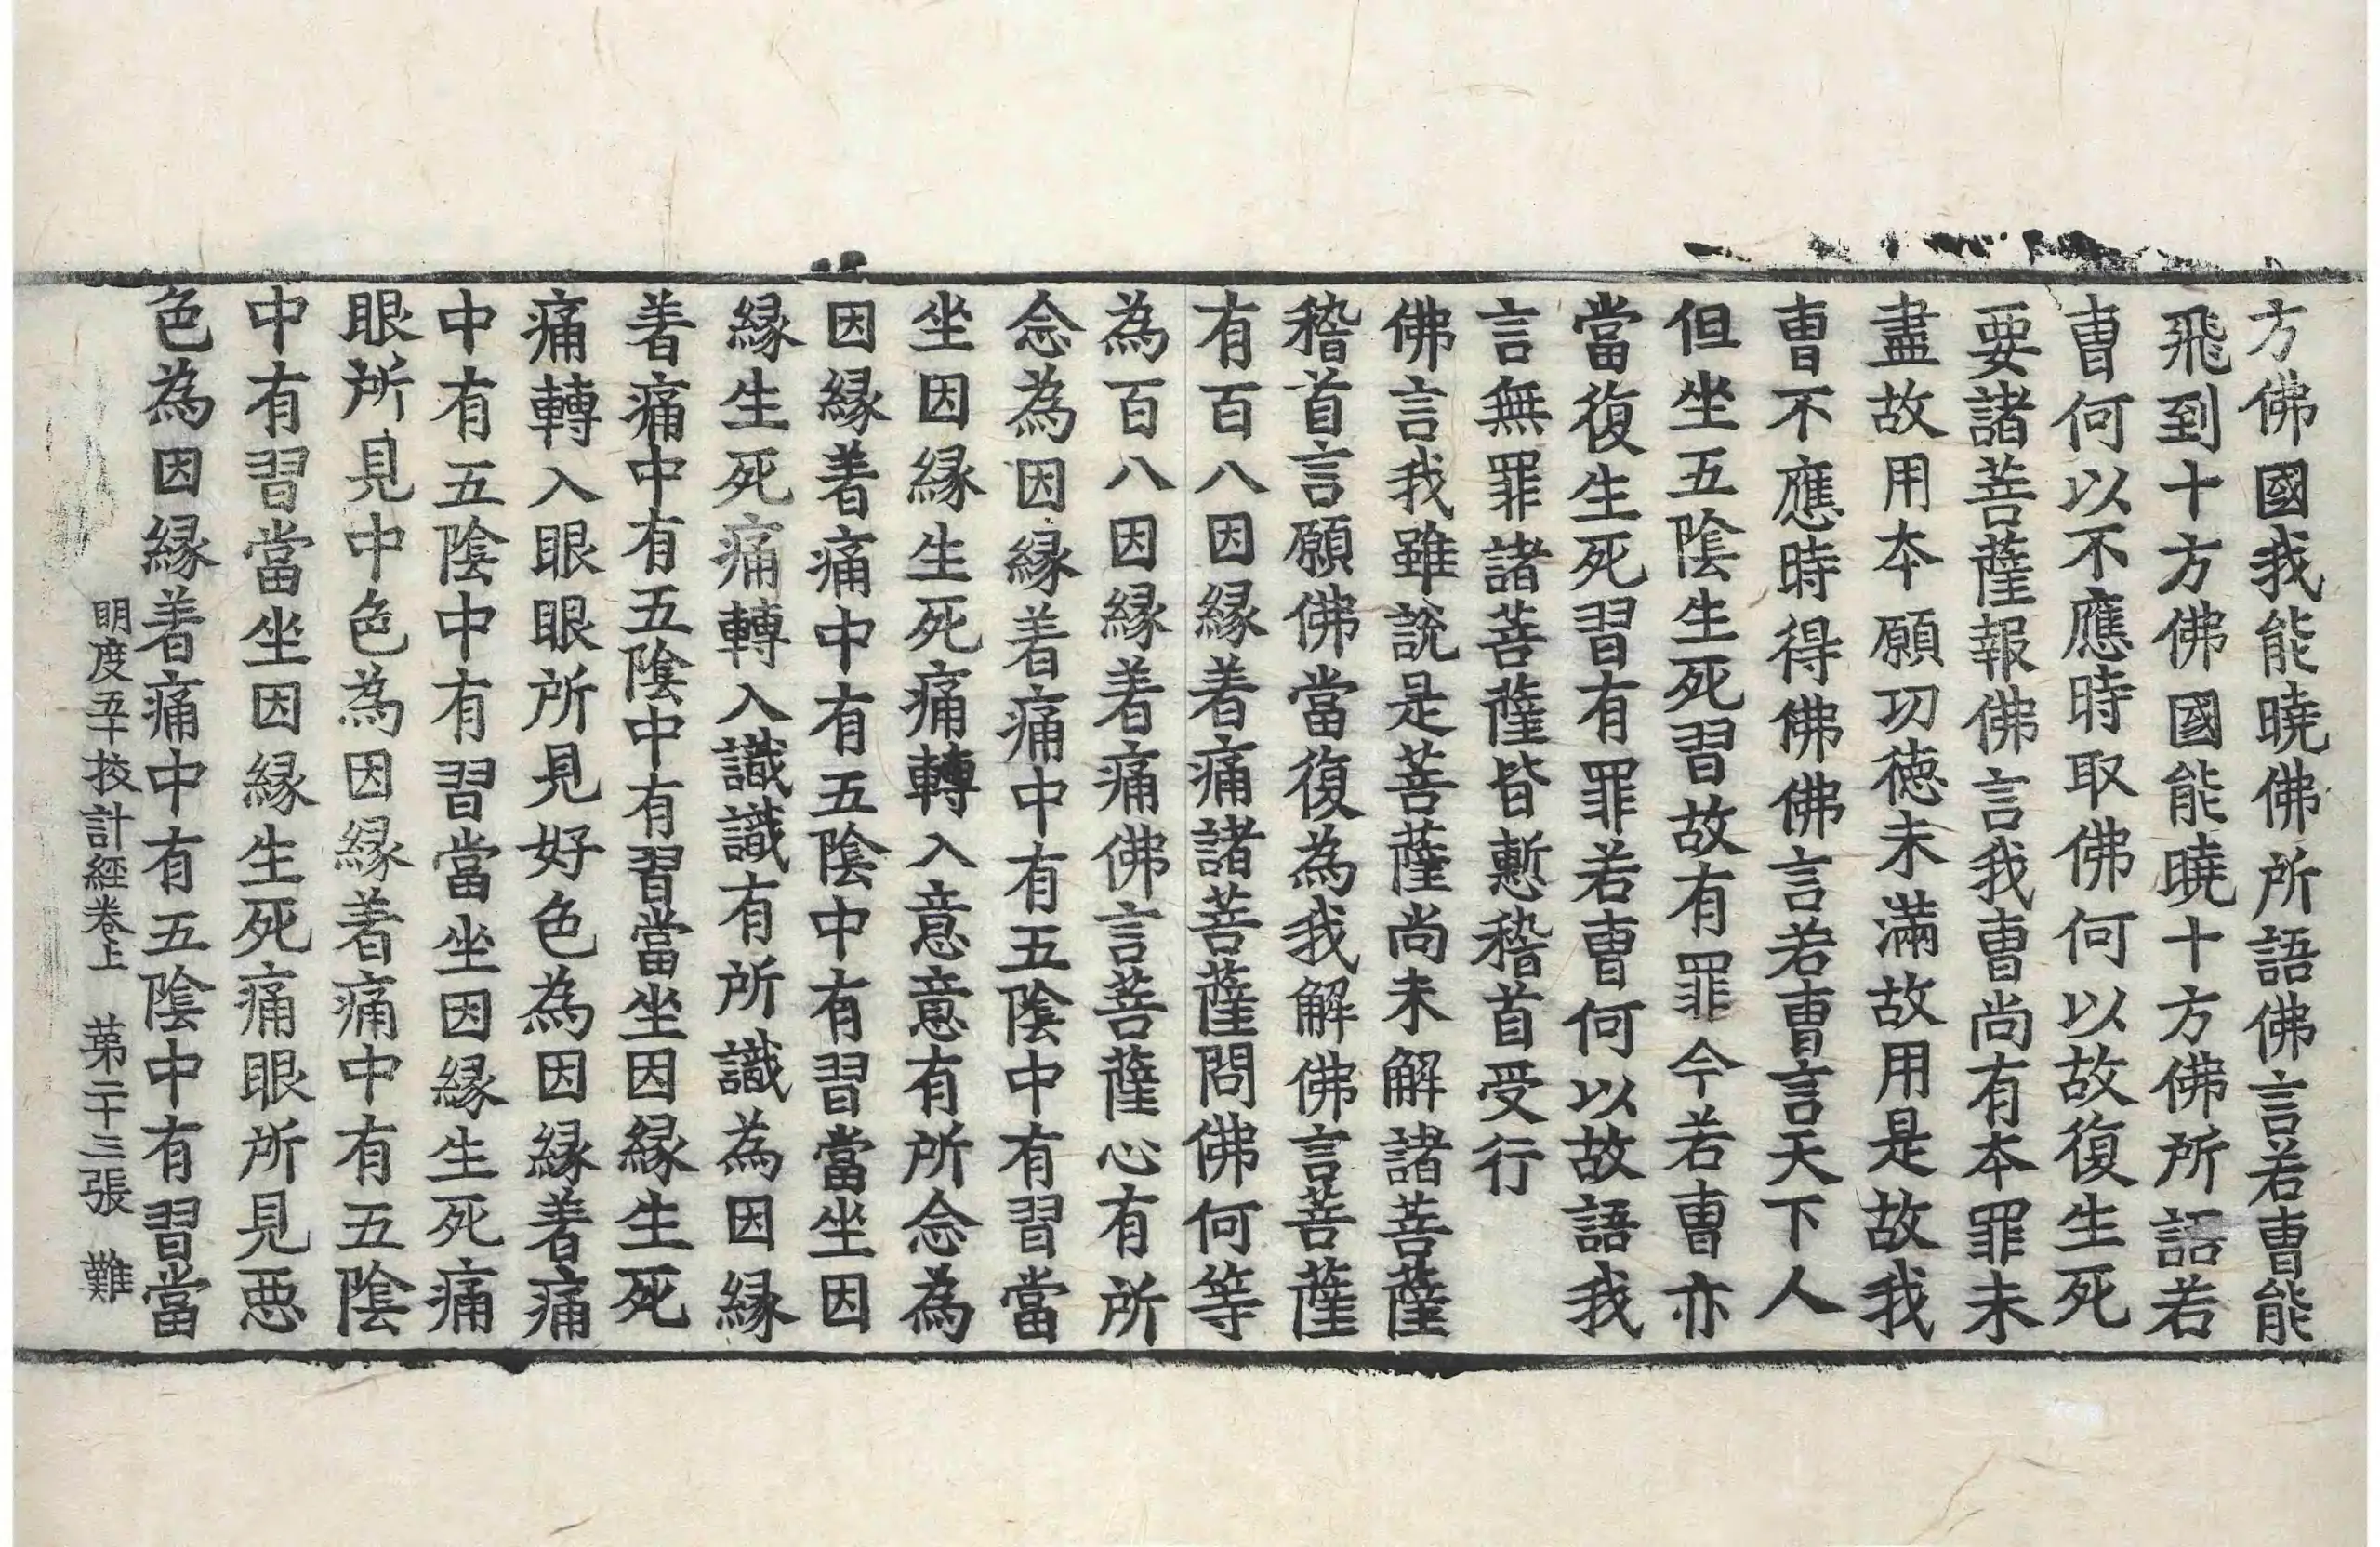 方佛國我能曉佛所語佛言若曺能
飛到十方佛國能曉十方佛所語若
曺何以不應時取佛何以故復生死
要諸菩薩報佛言我曺尚有本罪未
盡故用本願功德未滿故用是故我
曺不應時得佛佛言若曺言天下人
但坐五陰生死習故有罪今若曺亦
當復生死習有罪若曺何以故語我
言無罪諸菩薩皆慙稽首受行
佛言我雖說是菩薩尚未解諸菩薩
稽首言願佛當復為我解佛言菩薩
有百八因縁著痛諸菩薩問佛何等
為百八因縁著痛佛言菩薩心有所
念為因縁著痛中有五陰中有習當
坐因縁生死痛轉入意意有所念為
因縁著痛中有五陰中有習當坐因
縁生死痛轉入識識有所識為因縁
著痛中有五陰中有習當坐因縁生死
痛轉入眼眼所見好色為因縁著痛
中有五陰中有習當坐因縁生死痛
眼所見中色為因縁著痛中有五陰
中有習當坐因縁生死痛眼所見惡
色為因縁著痛中有五陰中有習當
明度五十挍計經卷上 第二十三張 難